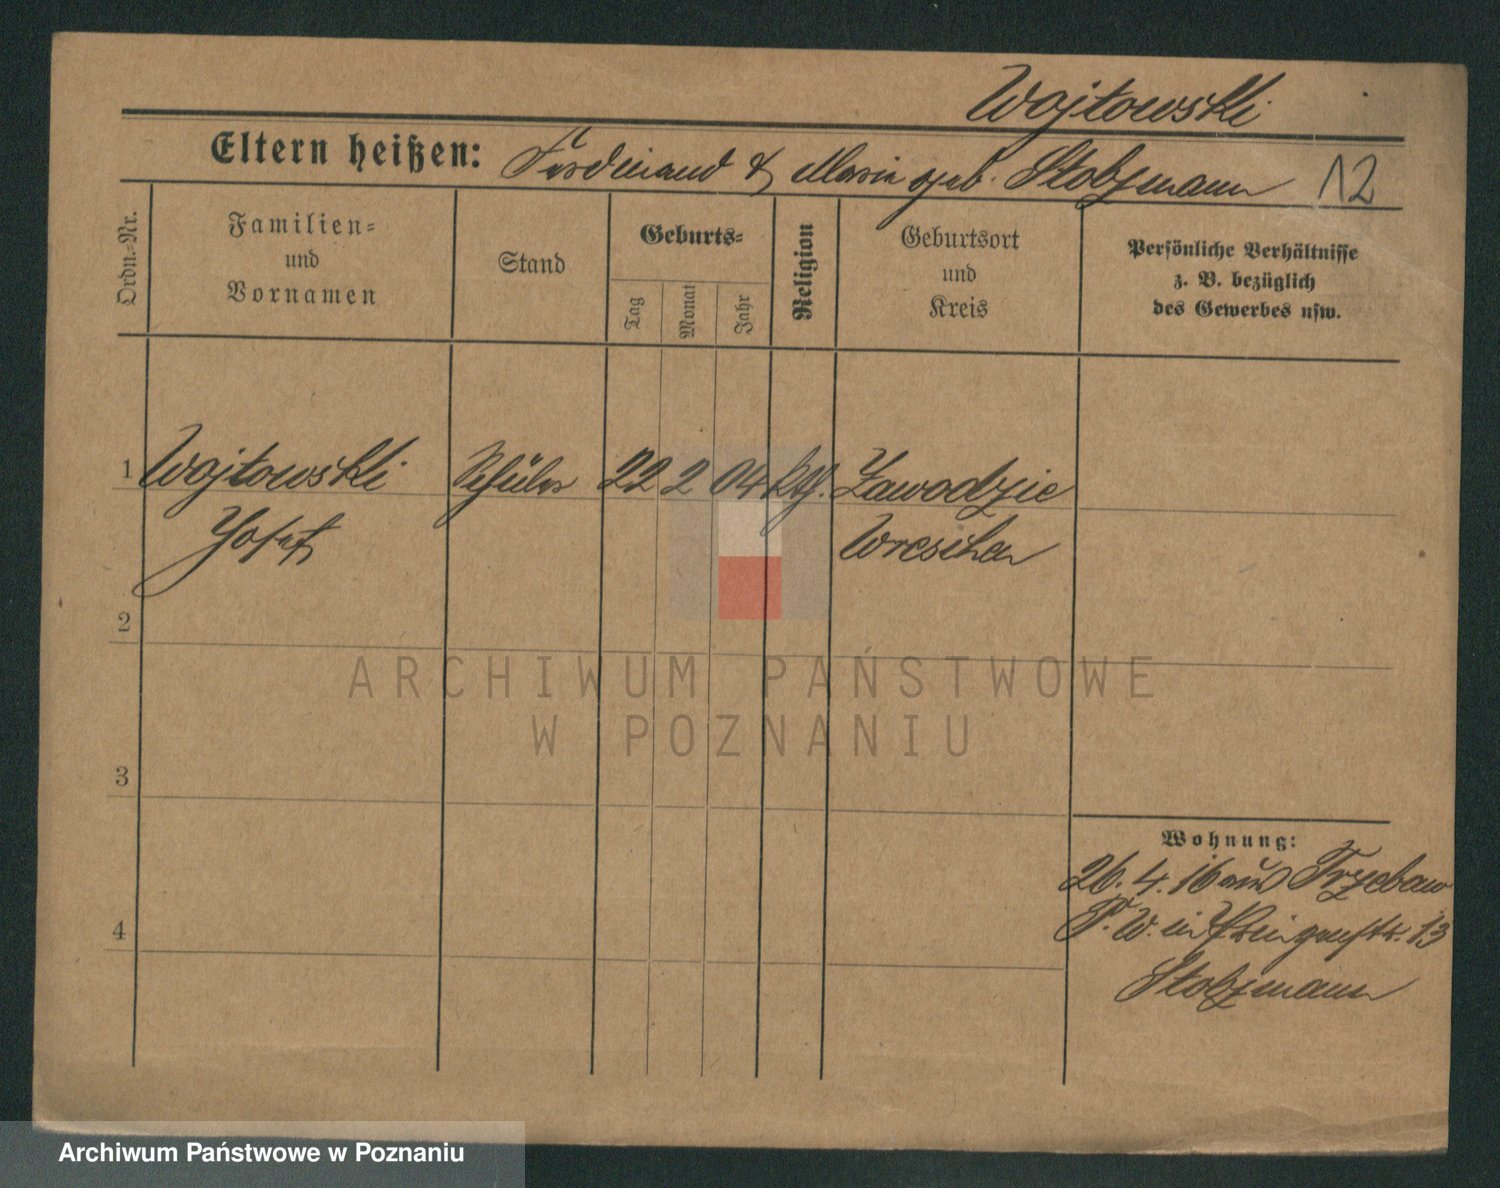 Wojtowski
Eltern heißen: Ferdinand & Maria geb. Stolzmann 12
Ordn.-Nr.
Familien-
und
Vornamen
Stand
Geburts-
Tag
Monat
Jahr
Religion
Geburtsort
und
Kreis
Persönliche Verhältnisse
z. B. bezüglich
des Gewerbes usw.
1 Wojtowski Schüler 22 2 04 kth. Zawodzie
Josef Wreschen
2
3
4
Wohnung:
26. 4. 16 aus Trzebaw
P. W. in 13
Stolzmann
ARCHIWUM PAŃSTWOWE
W POZNANIU
Archiwum Państwowe w Poznaniu